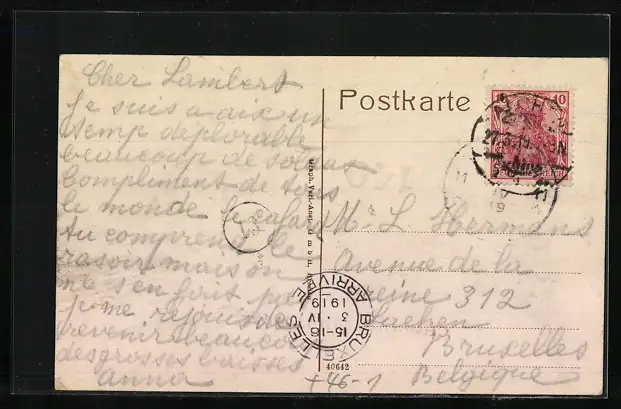 Cher Lambert
Je suis a aix un
temp deplorable
beaucoup de
Compliment de tous
le monde le cafard
tu comprend le
rasoir mais on
me s'en fait pas
je me rejouis de
revenir beaucoup
des grosses baisses
anna
Postkarte
10
27.3.19
Mr L Hermans
avenue de la
reine 312
Laeken
Bruxelles
Belgique
BRUXELLES
ARRIVEE
15-16
3 · IV
1919
40642
+46-1